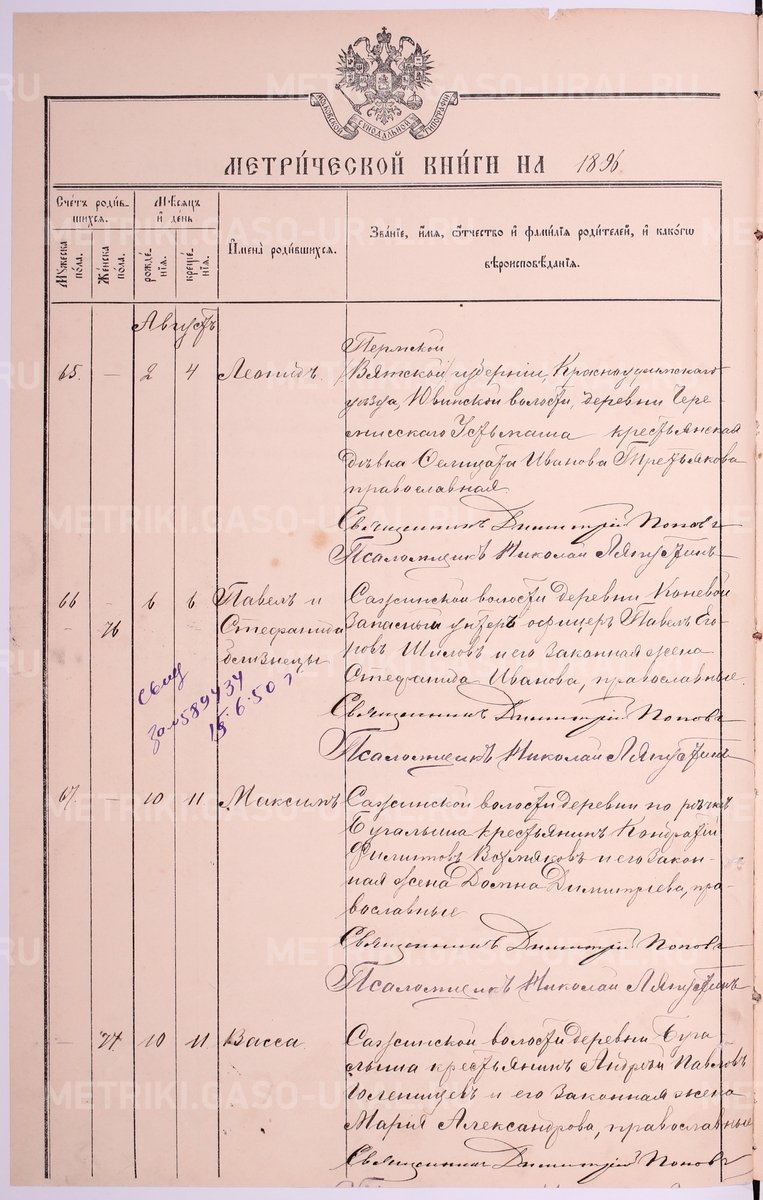 МОСКОВСКОЙ СѴНОДАЛЬНОЙ ТИПОГРАФІИ
МЕТРИ́ЧЕСКОЙ КНИ́ГИ НА 1896
Сче́тъ роди́в-
шихся.
Мꙋ́жеска по́ла.
Же́нска по́ла.
Мѣ́сяцъ
и҆ де́нь
рожде́-
нїя.
креще́-
нїя.
И҆мена̀ роди́вшихся.
Зва́нїе, и҆́мя, ѻ҆́тчество и҆ фами́лїя роди́телей, и҆ како́гѡ
вѣроисповѣ́данїя.
Августъ
Пермской
65. — 2 4 Леонидъ. Вятской губерніи, Красноуфимскаго
уѣзда, Ювинской волости, деревни Чере-
мисскаго Усть-маша крестьянская
дѣвка Селицата Иванова Третьякова
православная.
Священникъ Димитрій Поповъ
Псаломщикъ Николай Ляпустинъ
66 — 6 6 Павелъ и Сажинской волости деревни Коневой
— 76 Стефанида запасный унтеръ офицеръ Павелъ Его-
близнецы ровъ Шиловъ и его законная жена
Стефанида Иванова, православные.
589434
15.6.50 г
Священникъ Димитрій Поповъ
Псаломщикъ Николай Ляпустинъ
67. — 10 11 Максимъ Сажинской волости деревни по рѣчкѣ
Бугалыша крестьянинъ Кондратій
Филиповъ Вотяковъ и его закон-
ная жена Домна Димитріева, пра-
вославные
Священникъ Димитрій Поповъ
Псаломщикъ Николай Ляпустинъ
— 77. 10 11 Васса Сажинской волости деревни Буга-
лыша крестьянинъ Андрей Павловъ
Голенищевъ и его законная жена
Марія Александрова, православные
Священникъ Димитрій Поповъ
METRIKI.GASO-URAL.RU